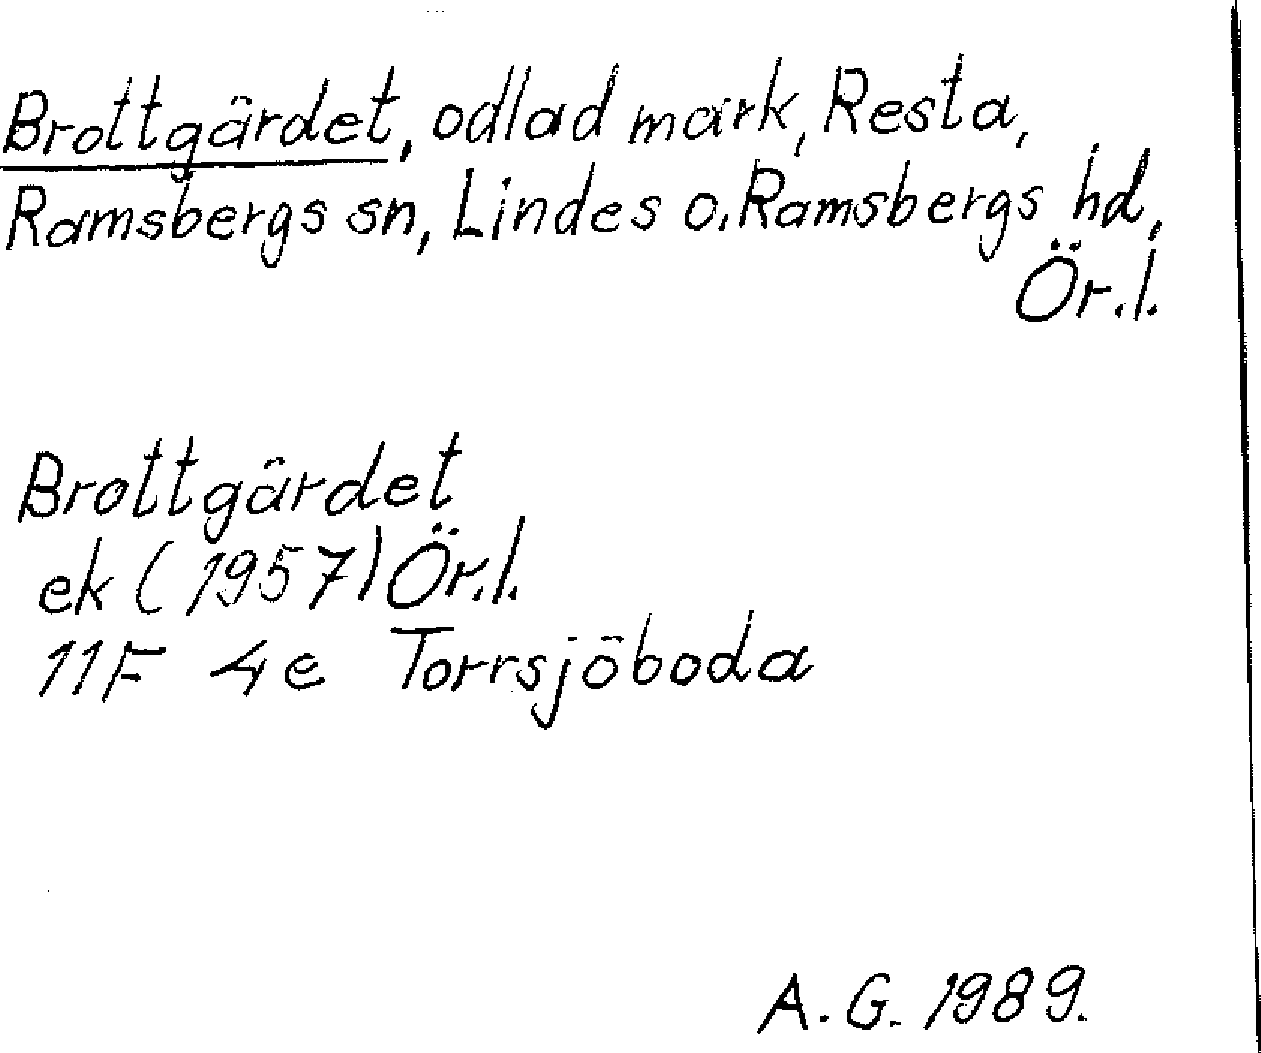 Brottgärdet, odlad mark, Resta,
Ramsbergs sn, Lindes o. Ramsbergs hd,
Ör.l.
Brottgärdet
ek (1957) Ör.l.
11F 4e Torrsjöboda
A.G. 1989.